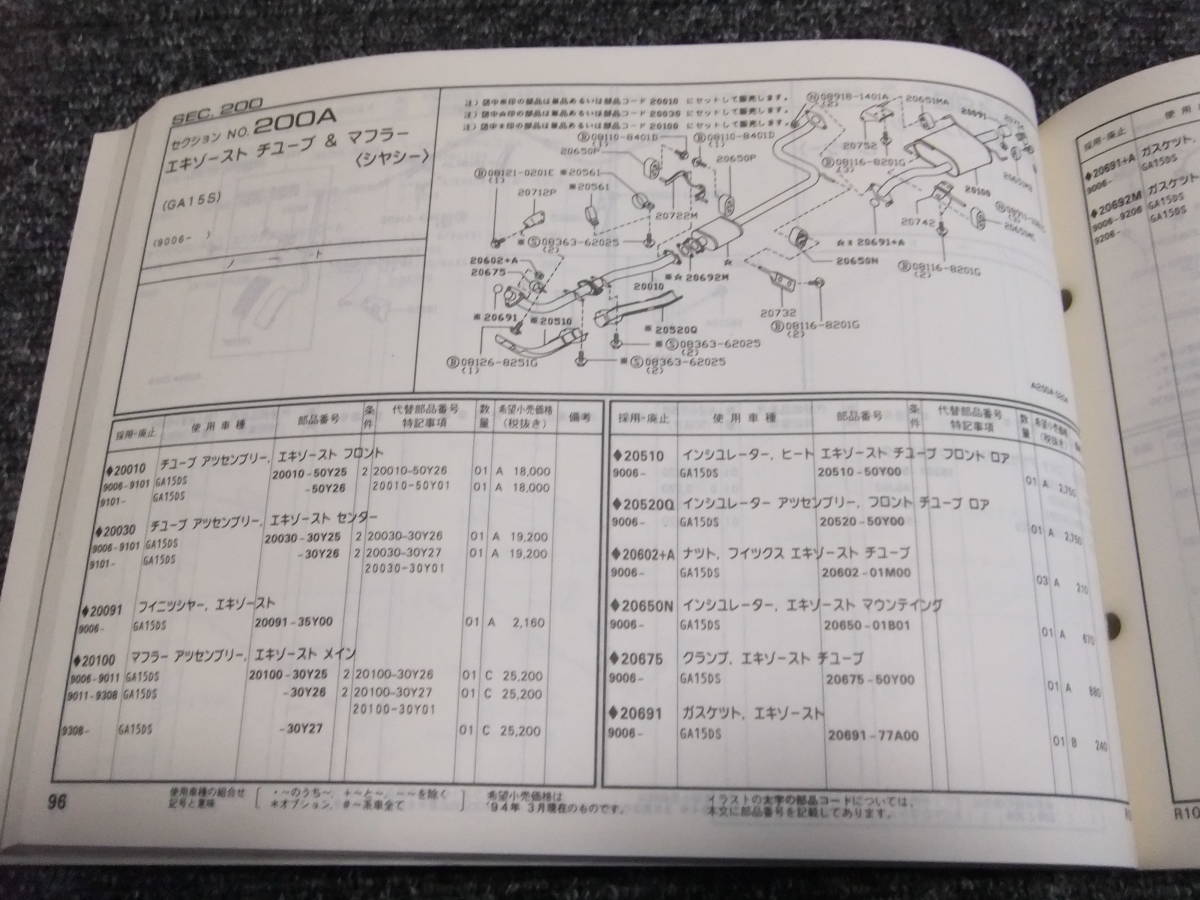 SEC. 200
セクション NO. 200A
エキゾースト チューブ & マフラー
〈シヤシー〉
(GA15S)
(9006- )
ノート
注) 図中※印の部品は単品あるいは部品コード 20010 にセットして販売します。
注) 図中☆印の部品は単品あるいは部品コード 20030 にセットして販売します。
注) 図中¤印の部品は単品あるいは部品コード 20100 にセットして販売します。
Ⓝ08918-1401A
(2)
20651MA
20091
Ⓑ08110-8401D
(1)
Ⓑ08110-8401D
(1)
20752
20650P
20650P
Ⓑ08116-8201G
(3)
20100
Ⓑ08121-0201E
(1)
※20561
※20561
20712P
20722M
20742
※Ⓢ08363-62025
(2)
20602+A
20675
20691+A
20650N
Ⓑ08116-8201G
(2)
20010
※☆20692M
※20691
※20510
※20520Q
20732
Ⓑ08116-8201G
(2)
※Ⓢ08363-62025
(2)
Ⓑ08126-8251G
(1)
※Ⓢ08363-62025
(2)
採用-廃止 使用車種 部品番号 条件 代替部品番号 特記事項 数量 希望小売価格 (税抜き) 備考
◆20010 チューブ アツセンブリー, エキゾースト フロント
9006-9101 GA15DS 20010-50Y25 2 20010-50Y26 01 A 18,000
9101- GA15DS -50Y26 20010-50Y01 01 A 18,000
◆20030 チューブ アツセンブリー, エキゾースト センター
9006-9101 GA15DS 20030-30Y25 2 20030-30Y26 01 A 19,200
9101- GA15DS -30Y26 2 20030-30Y27 01 A 19,200
20030-30Y01
◆20091 フイニツシヤー, エキゾースト
9006- GA15DS 20091-35Y00 01 A 2,160
◆20100 マフラー アツセンブリー, エキゾースト メイン
9006-9011 GA15DS 20100-30Y25 2 20100-30Y26 01 C 25,200
9011-9308 GA15DS -30Y26 2 20100-30Y27 01 C 25,200
20100-30Y01
9308- GA15DS -30Y27 01 C 25,200
採用-廃止 使用車種 部品番号 条件 代替部品番号 特記事項 数量 希望小売価格 (税抜き)
◆20510 インシュレーター, ヒート エキゾースト チューブ フロント ロア
9006- GA15DS 20510-50Y00 01 A 2,750
◆20520Q インシュレーター アツセンブリー, フロント チューブ ロア
9006- GA15DS 20520-50Y00 01 A 2,750
◆20602+A ナツト, フイツクス エキゾースト チューブ
9006- GA15DS 20602-01M00 03 A 210
◆20650N インシュレーター, エキゾースト マウンテイング
9006- GA15DS 20650-01B01 01 A 670
◆20675 クランプ, エキゾースト チューブ
9006- GA15DS 20675-50Y00 01 A 880
◆20691 ガスケット, エキゾースト
9006- GA15DS 20691-77A00 01 B 240
96
使用車種の組合せ
記号と意味
・~のうち~, +~と~, -~を除く
*オプション, #~系車全て
希望小売価格は
'94年 3月現在のものです。
イラストの太字の部品コードについては,
本文に部品番号を記載してあります。
採用-廃止
◆20691+A ガスケット,
9006- GA15DS
◆20692M ガスケット
9006-9208 GA15DS
9208- GA15DS
R10